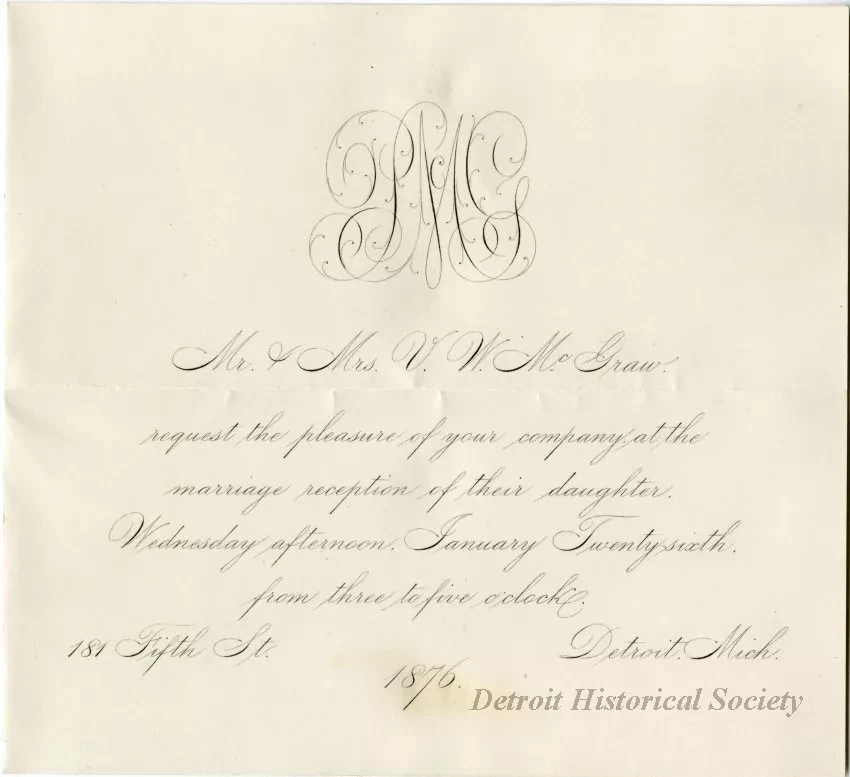 Mr. & Mrs. V. W. Mc Graw.
request the pleasure of your company at the
marriage reception of their daughter.
Wednesday afternoon. January Twenty sixth.
from three to five o'clock.
181 Fifth St. Detroit. Mich.
1876.
Detroit Historical Society